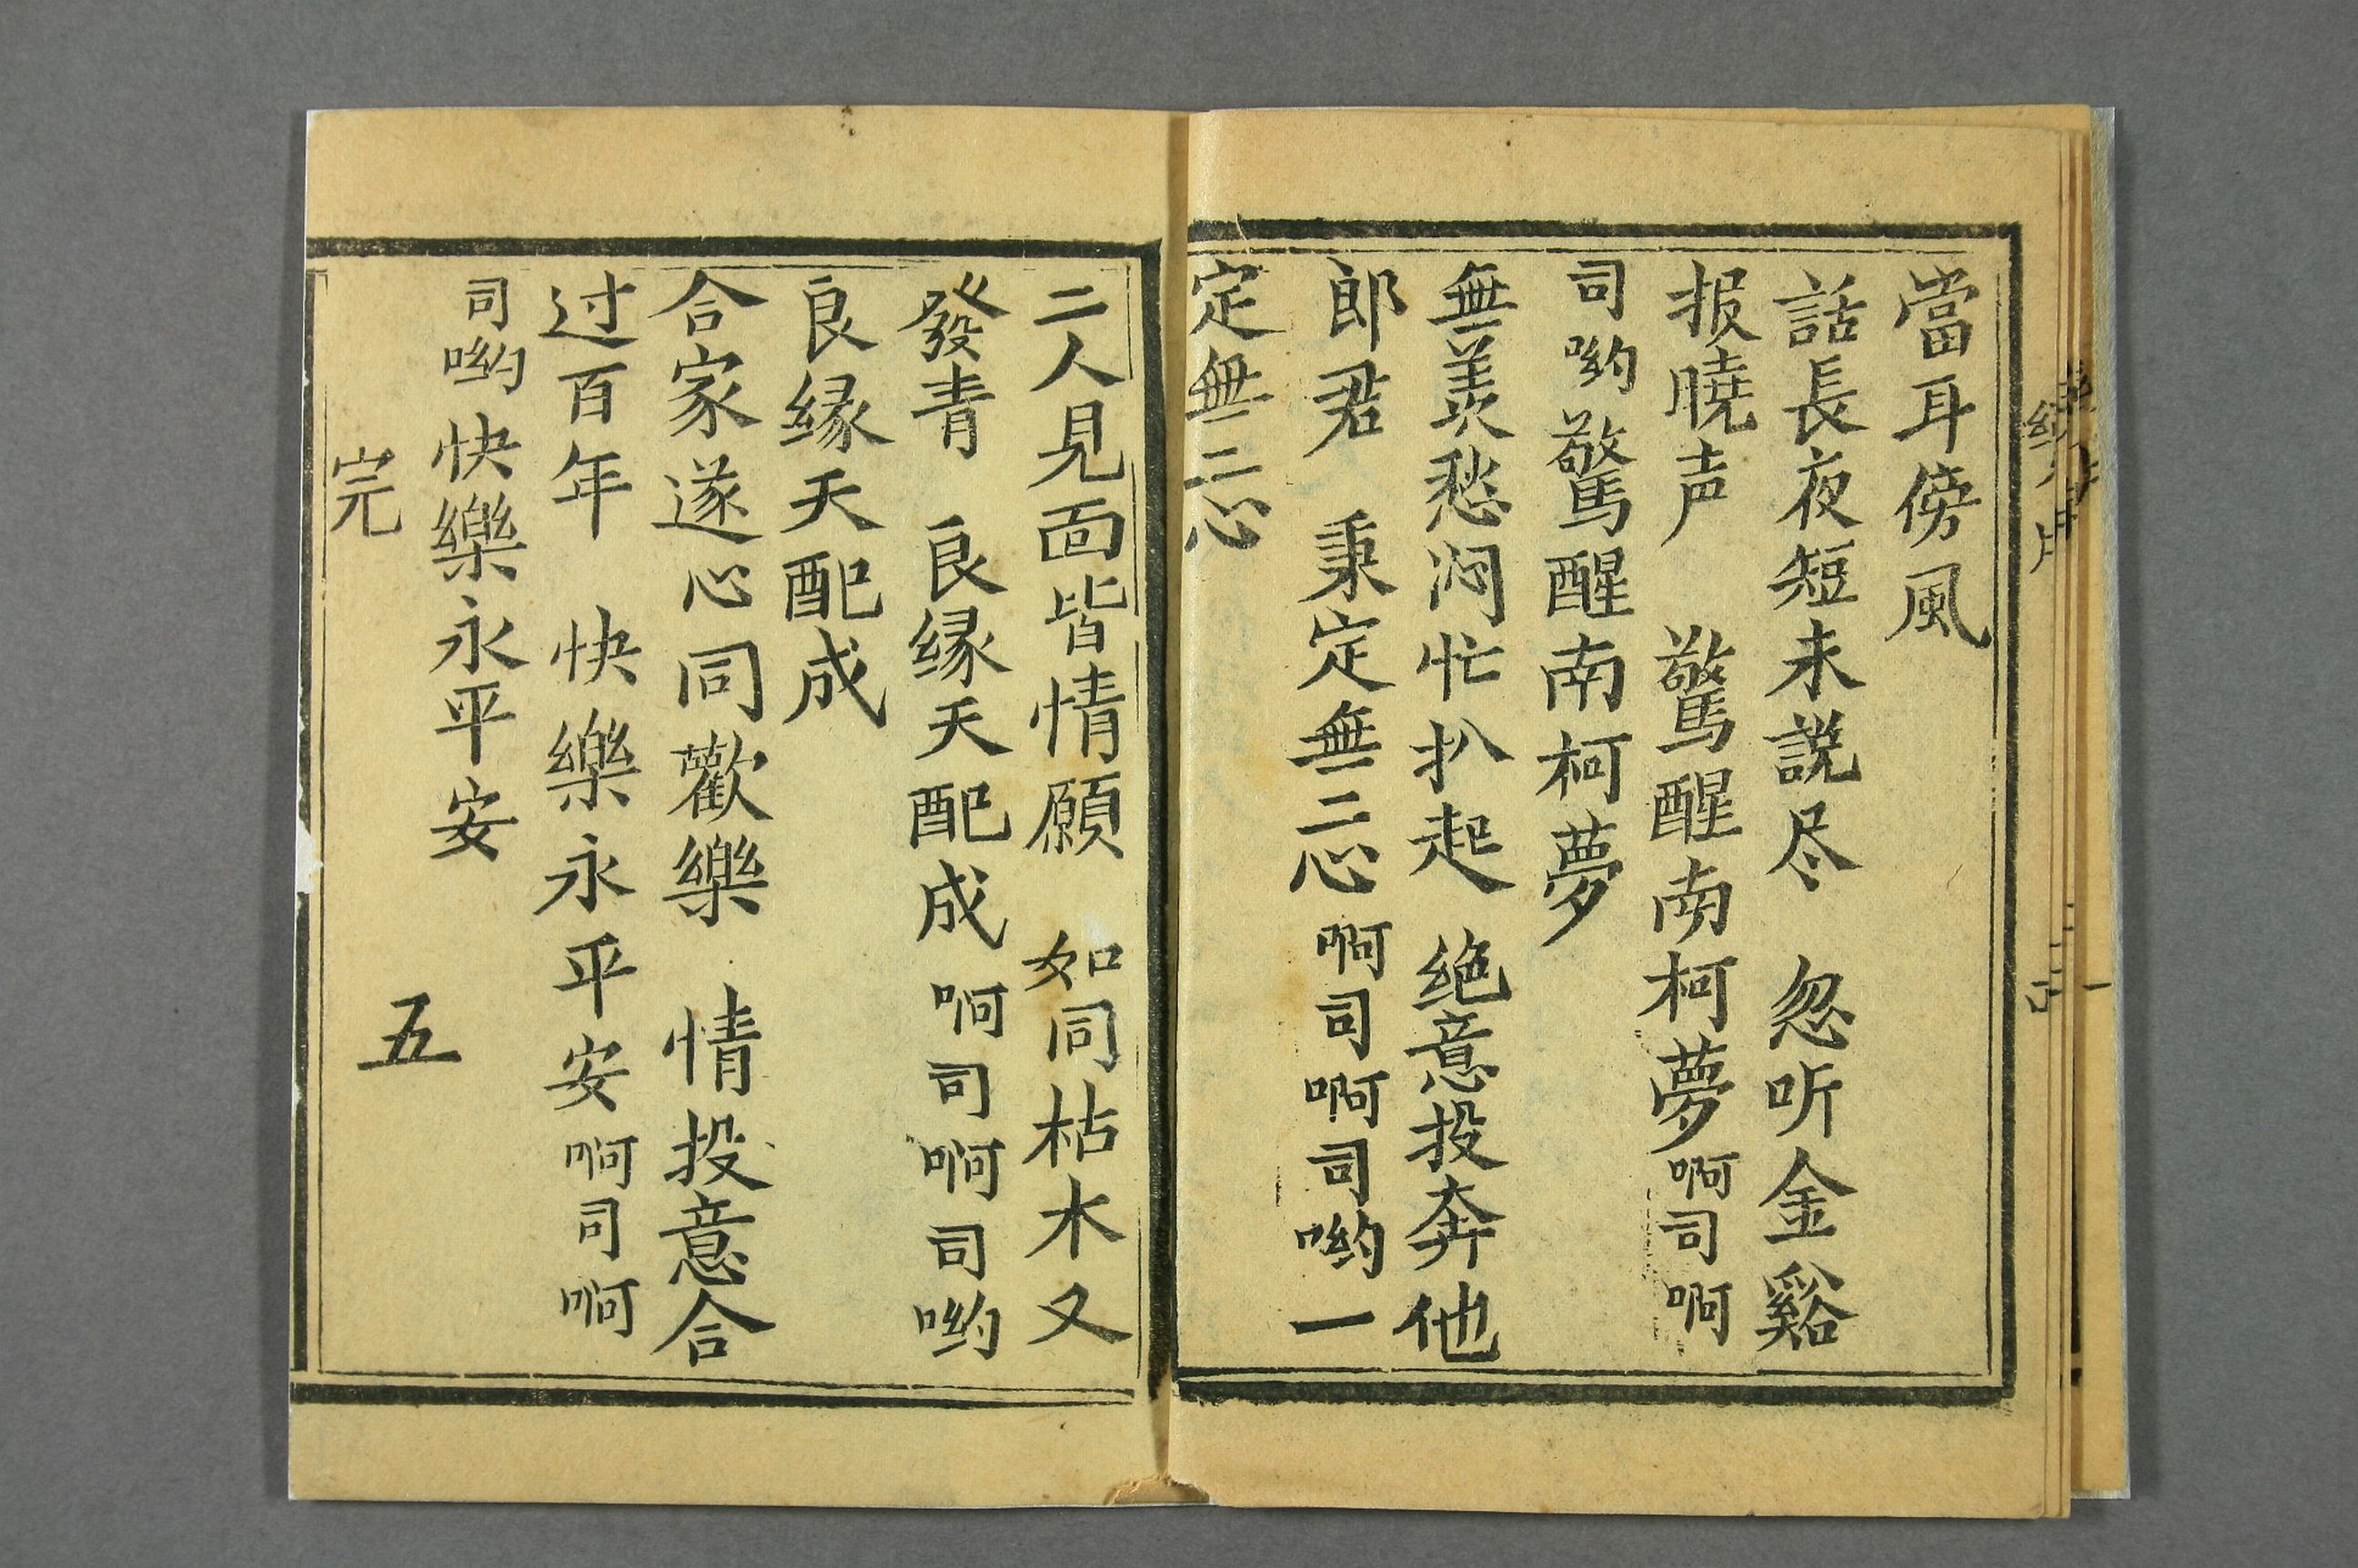 當耳傍風
話長夜短未説尽 忽听金谿
报曉声 驚醒南柯夢啊司啊
司喲驚醒南柯夢
無羨愁闷忙扒起 绝意投奔他
郎君 秉定無二心啊司啊司喲一
定無二心
二人見面皆情願 如同枯木又
發青 良縁天配成啊司啊司喲
良縁天配成
合家遂心同歡樂 情投意合
过百年 快樂永平安啊司啊
司喲快樂永平安
完
五